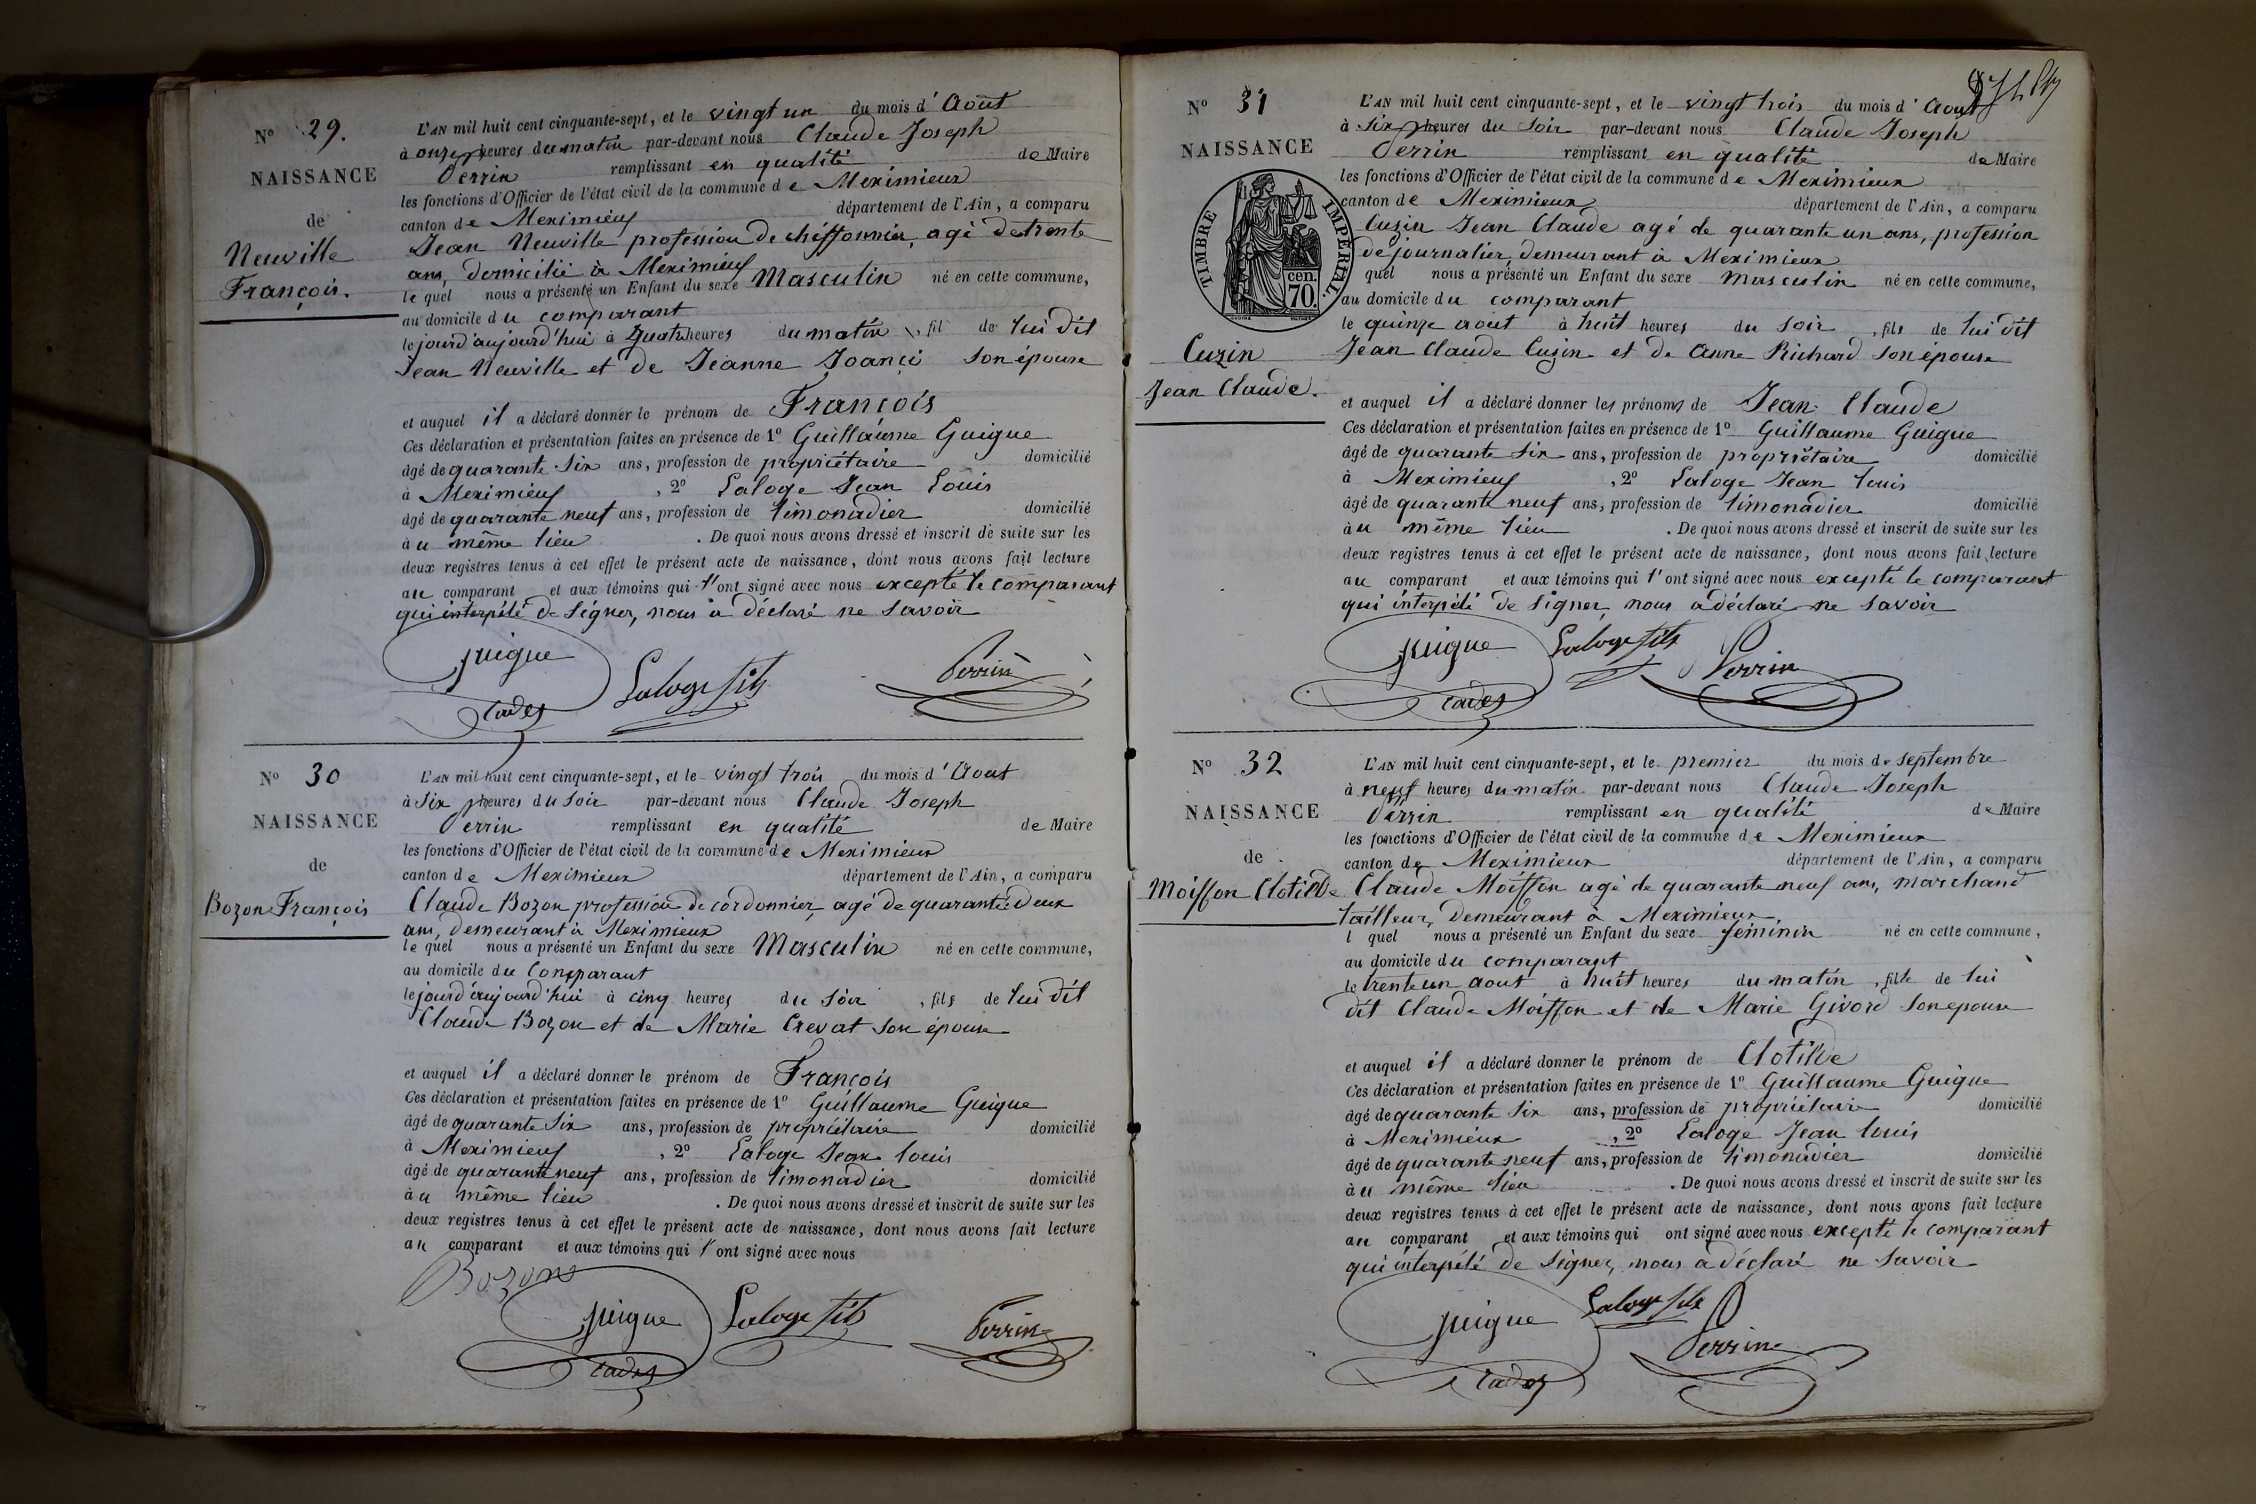 N° 29.
NAISSANCE
de
Neuville
François.
L'AN mil huit cent cinquante-sept, et le vingt un du mois d'Aout
à onze heures du matin par-devant nous Claude Joseph
Perrin remplissant en qualité de Maire
les fonctions d'Officier de l'état civil de la commune de Meximieux
canton de Meximieux département de l'Ain, a comparu
Jean Neuville profession de chiffonnier, agé de trente
ans, domicilié à Meximieux
le quel nous a présenté un Enfant du sexe Masculin né en cette commune,
au domicile du comparant
le jourd'aujourd'hui à quatre heures du matin, fil de lui dit
Jean Neuville et de Jeanne son épouse
et auquel il a déclaré donner le prénom de François
Ces déclaration et présentation faites en présence de 1° Guillaume Guigue
âgé de quarante six ans, profession de propriétaire domicilié
à Meximieux, 2° Laloge Jean Louis
âgé de quarante neuf ans, profession de limonadier domicilié
à u même lieu. De quoi nous avons dressé et inscrit de suite sur les
deux registres tenus à cet effet le présent acte de naissance, dont nous avons fait lecture
au comparant et aux témoins qui l'ont signé avec nous excepté le comparant
qui interpélé de signer, nous a déclaré ne savoir
guigue
Laloge fils
Perrin
cadet
N° 30
NAISSANCE
de
Bozon François
L'AN mil huit cent cinquante-sept, et le vingt trois du mois d'Aout
à six heures du soir par-devant nous Claude Joseph
Perrin remplissant en qualité de Maire
les fonctions d'Officier de l'état civil de la commune de Meximieux
canton de Meximieux département de l'Ain, a comparu
Claude Bozon profession de cordonnier, agé de quarante deux
ans, demeurant à Meximieux
le quel nous a présenté un Enfant du sexe Masculin né en cette commune,
au domicile du Comparant
le jourd'aujourd'hui à cinq heures du soir, fils de lui dit
Claude Bozon et de Marie Crevat son épouse
et auquel il a déclaré donner le prénom de François
Ces déclaration et présentation faites en présence de 1° Guillaume Guigue
âgé de quarante six ans, profession de propriétaire domicilié
à Meximieux, 2° Laloge Jean Louis
âgé de quarante neuf ans, profession de limonadier domicilié
à u même lieu. De quoi nous avons dressé et inscrit de suite sur les
deux registres tenus à cet effet le présent acte de naissance, dont nous avons fait lecture
au comparant et aux témoins qui l'ont signé avec nous
Bozon
guigue
Laloge fils
Perrin
cadet
N° 31
NAISSANCE
TIMBRE IMPERIAL.
cen.
70.
Cuzin
Jean Claude.
L'AN mil huit cent cinquante-sept, et le vingt trois du mois d'Aout
à six heures du soir par-devant nous Claude Joseph
Perrin remplissant en qualité de Maire
les fonctions d'Officier de l'état civil de la commune de Meximieux
canton de Meximieux département de l'Ain, a comparu
Cuzin Jean Claude agé de quarante un ans, profession
de journalier, demeurant à Meximieux
quel nous a présenté un Enfant du sexe masculin né en cette commune,
au domicile du comparant
le quinze aout à huit heures du soir, fils de lui dit
Jean Claude Cuzin et de Anne Richard son épouse
et auquel il a déclaré donner les prénoms de Jean Claude
Ces déclaration et présentation faites en présence de 1° Guillaume Guigue
âgé de quarante six ans, profession de propriétaire domicilié
à Meximieux, 2° Laloge Jean Louis
âgé de quarante neuf ans, profession de limonadier domicilié
à u même lieu. De quoi nous avons dressé et inscrit de suite sur les
deux registres tenus à cet effet le présent acte de naissance, dont nous avons fait lecture
au comparant et aux témoins qui l'ont signé avec nous excepté le comparant
qui interpélé de signer, nous a déclaré ne savoir
guigue
Laloge fils
Perrin
cadet
N° 32
NAISSANCE
de
Moiffon Clotilde
L'AN mil huit cent cinquante-sept, et le premier du mois de septembre
à neuf heures du matin par-devant nous Claude Joseph
Perrin remplissant en qualité de Maire
les fonctions d'Officier de l'état civil de la commune de Meximieux
canton de Meximieux département de l'Ain, a comparu
Claude Moiffon agé de quarante neuf ans, marchand
tailleur, demeurant à Meximieux,
l quel nous a présenté un Enfant du sexe féminin né en cette commune,
au domicile du comparant
le trente un aout à huit heures du matin, fille de lui
dit Claude Moiffon et de Marie Givord son epouse
et auquel il a déclaré donner le prénom de Clotilde
Ces déclaration et présentation faites en présence de 1° Guillaume Guigue
âgé de quarante six ans, profession de propriétaire domicilié
à Meximieux, 2° Laloge Jean Louis
âgé de quarante neuf ans, profession de limonadier domicilié
à u même lieu. De quoi nous avons dressé et inscrit de suite sur les
deux registres tenus à cet effet le présent acte de naissance, dont nous avons fait lecture
au comparant et aux témoins qui ont signé avec nous excepté le comparant
qui interpélé de signer, nous a déclaré ne savoir
guigue
Laloge fils
Perrin
cadet